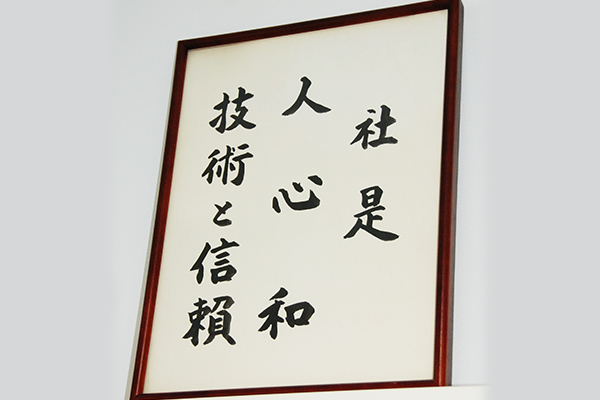 社是
人心和
技術と信頼